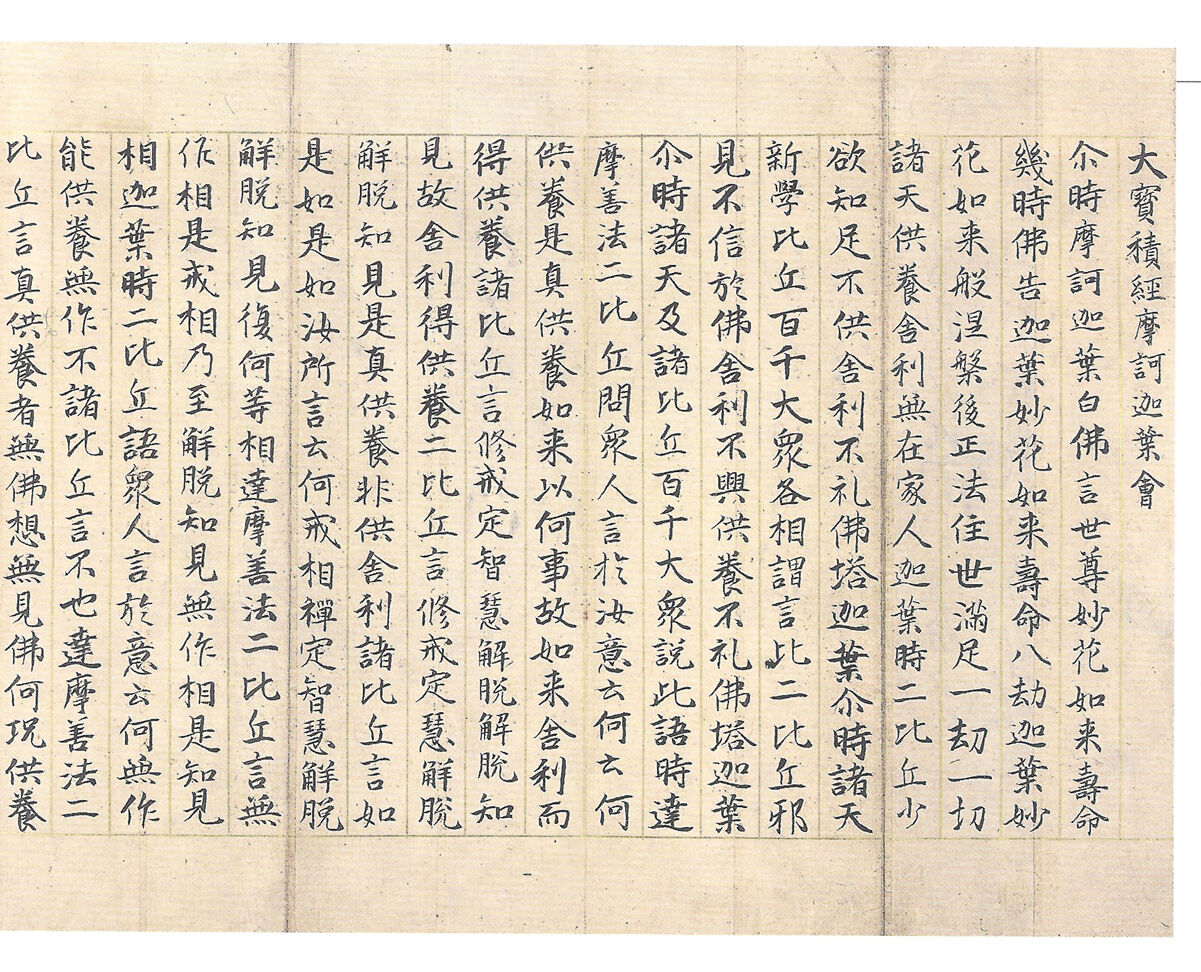 大寶積經摩訶迦葉會
尒時摩訶迦葉白佛言世尊妙花如来壽命
幾時佛告迦葉妙花如来壽命八劫迦葉妙
花如来般涅槃後正法住世滿足一劫一切
諸天供養舍利無在家人迦葉時二比丘少
欲知足不供舍利不礼佛塔迦葉尒時諸天
新學比丘百千大眾各相謂言此二比丘邪
見不信於佛舍利不興供養不礼佛塔迦葉
尒時諸天及諸比丘百千大眾說此語時達
摩善法二比丘問眾人言於汝意云何云何
供養是真供養如来以何事故如来舍利而
得供養諸比丘言修戒定智慧解脫解脫知
見故舍利得供養二比丘言修戒定慧解脫
解脫知見是真供養非供舍利諸比丘言如
是如是如汝所言云何戒相禪定智慧解脫
解脫知見復何等相達摩善法二比丘言無
作相是戒相乃至解脫知見無作相是知見
相迦葉時二比丘語眾人言於意云何無作
能供養無作不諸比丘言不也達摩善法二
比丘言真供養者無佛想無見佛何况供養